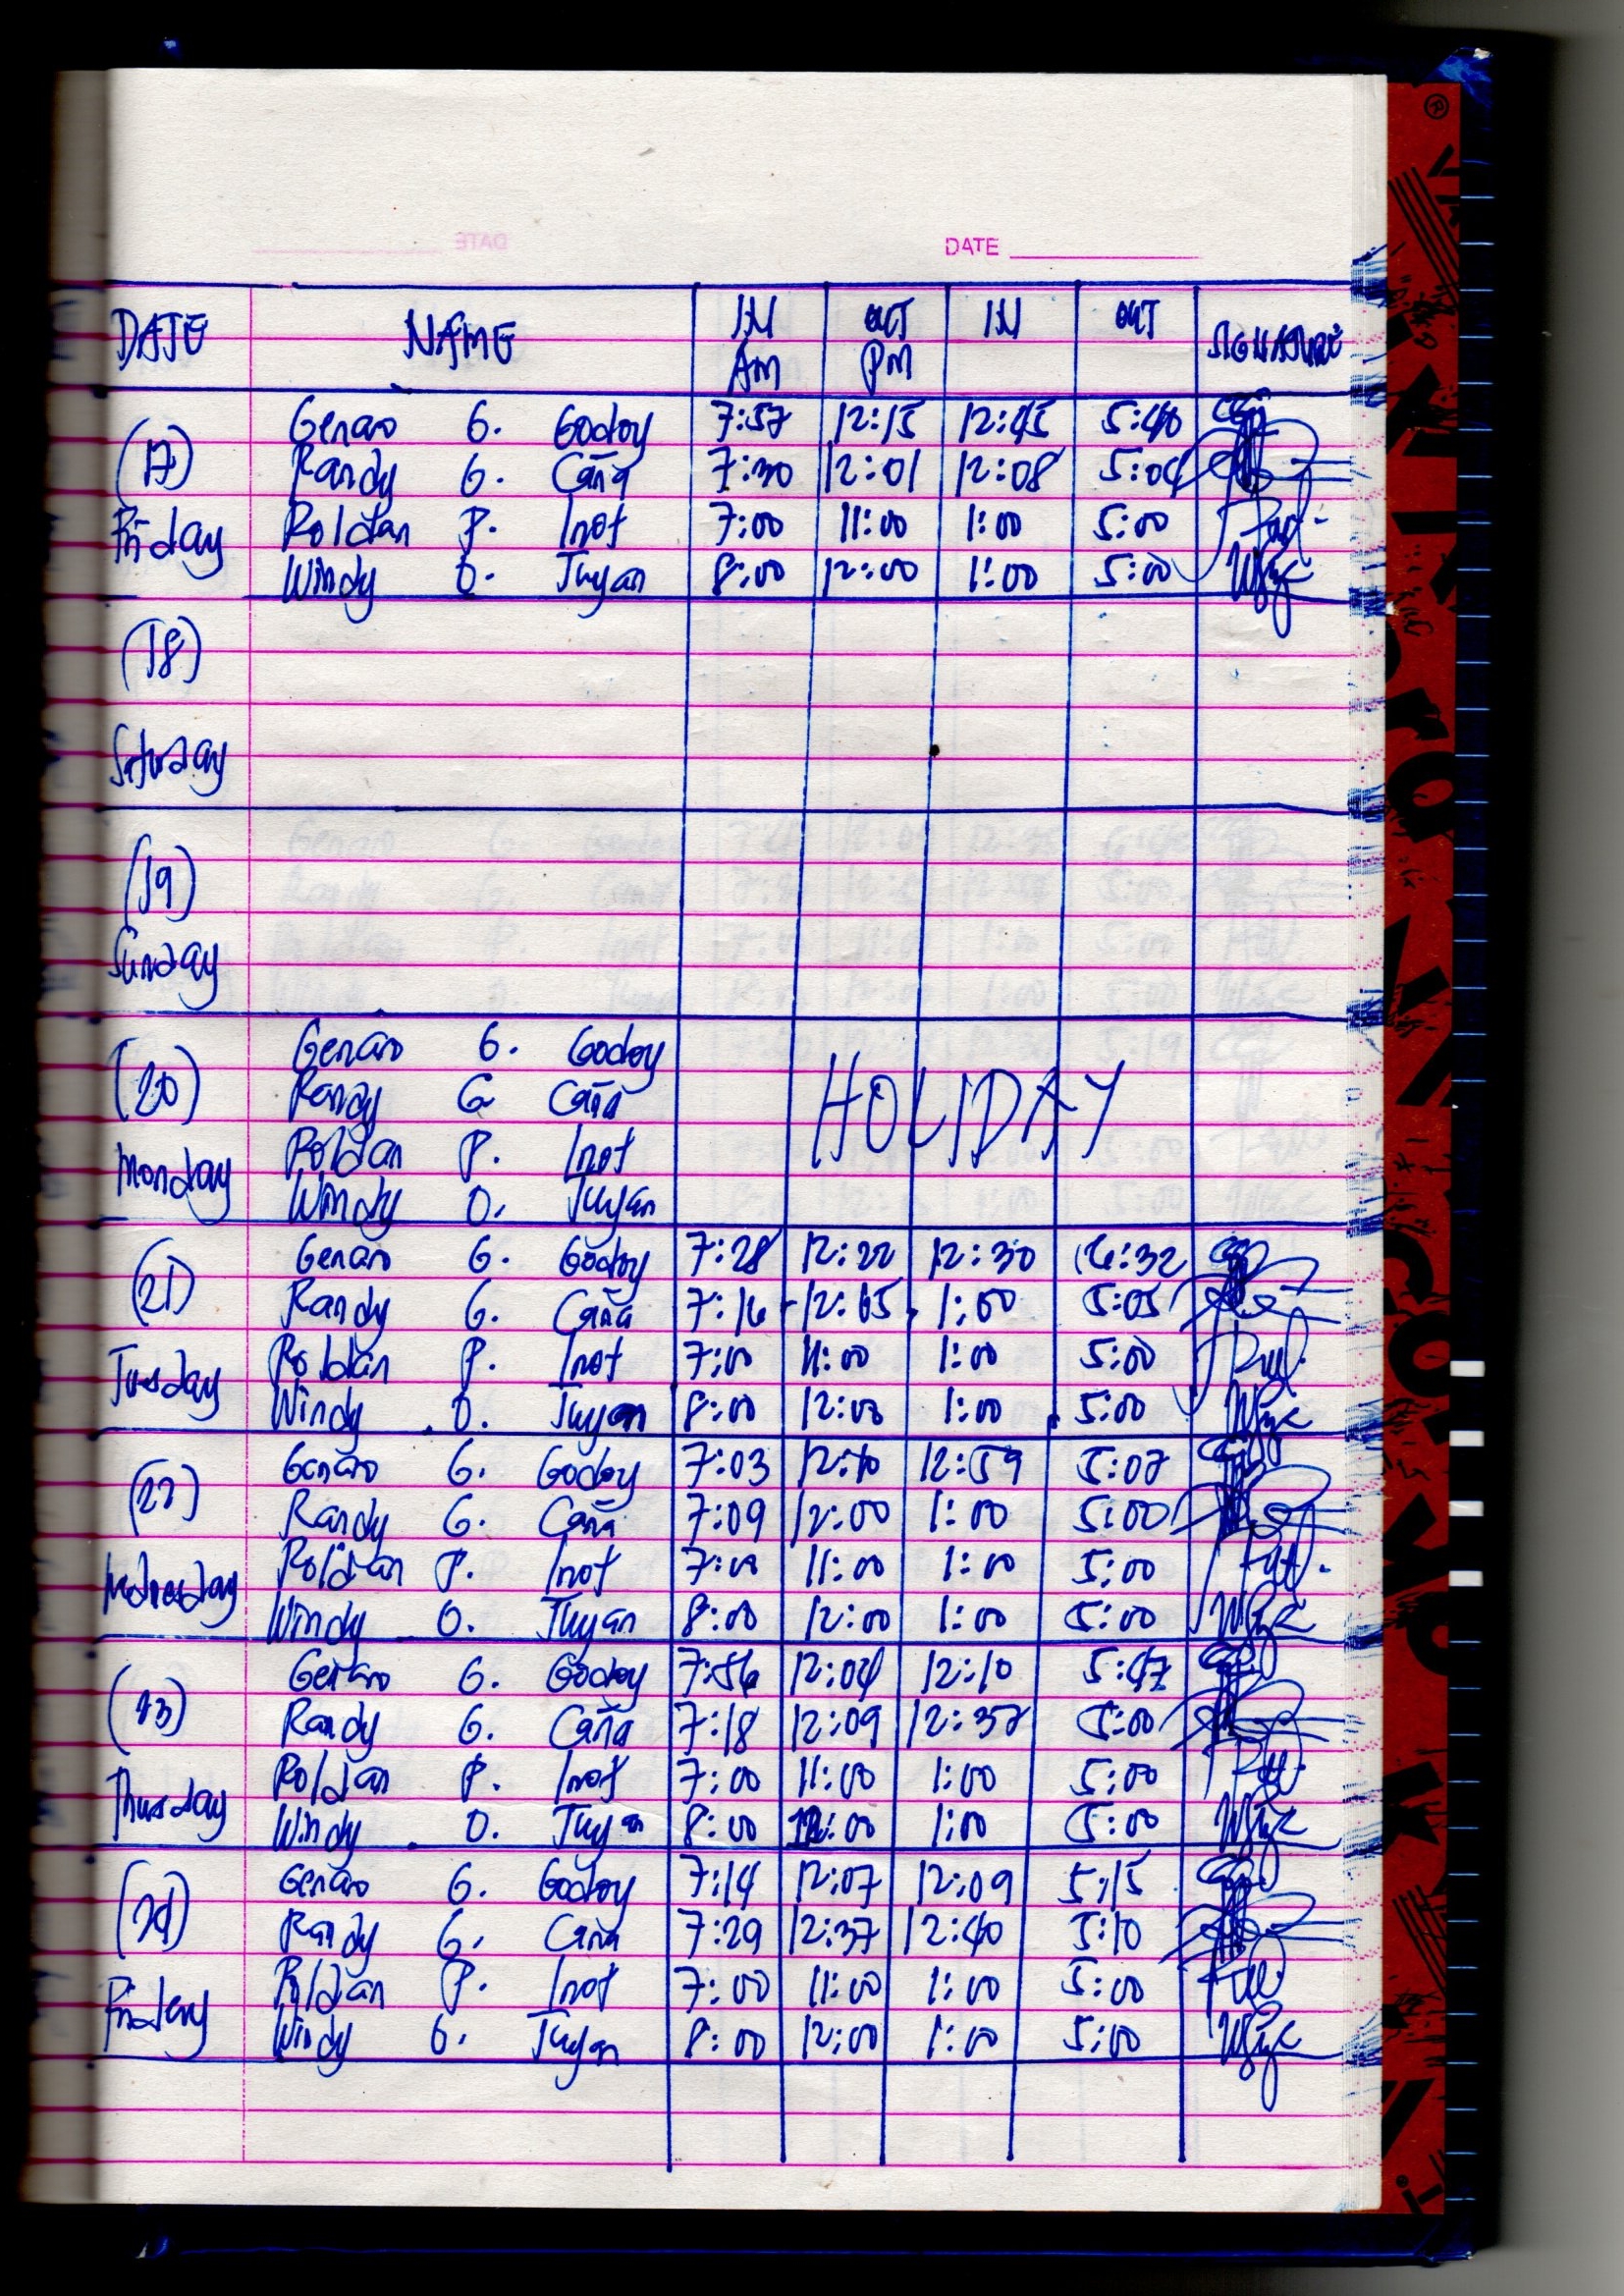 DATE
DATE NAME IN AM OUT PM IN OUT SIGNATURE
(17) Friday
Genaro G. Godoy 7:57 12:15 12:45 5:40
Randy G. Caña 7:30 12:01 12:08 5:04
Roldan P. Inot 7:00 11:00 1:00 5:00
Windy O. Tuyan 8:00 12:00 1:00 5:00
(18)
Saturday
(19)
Sunday
(20) Monday
Genaro G. Godoy
Randy G Caña HOLIDAY
Roldan P. Inot
Windy O. Tuyan
(21) Tuesday
Genaro G. Godoy 7:28 12:22 12:30 6:32
Randy G. Caña 7:16 12:05 1:00 5:05
Roldan P. Inot 7:00 11:00 1:00 5:00
Windy O. Tuyan 8:00 12:00 1:00 5:00
(22) Wednesday
Genaro G. Godoy 7:03 12:10 12:59 5:07
Randy G. Caña 7:09 12:00 1:00 5:00
Roldan P. Inot 7:00 11:00 1:00 5:00
Windy O. Tuyan 8:00 12:00 1:00 5:00
(23) Thursday
Genaro G. Godoy 7:56 12:04 12:10 5:47
Randy G. Caña 7:18 12:09 12:37 5:00
Roldan P. Inot 7:00 11:00 1:00 5:00
Windy O. Tuyan 8:00 12:00 1:00 5:00
(24) Friday
Genaro G. Godoy 7:14 12:07 12:09 5:15
Randy G. Caña 7:29 12:37 12:40 5:10
Roldan P. Inot 7:00 11:00 1:00 5:00
Windy O. Tuyan 8:00 12:00 1:00 5:00